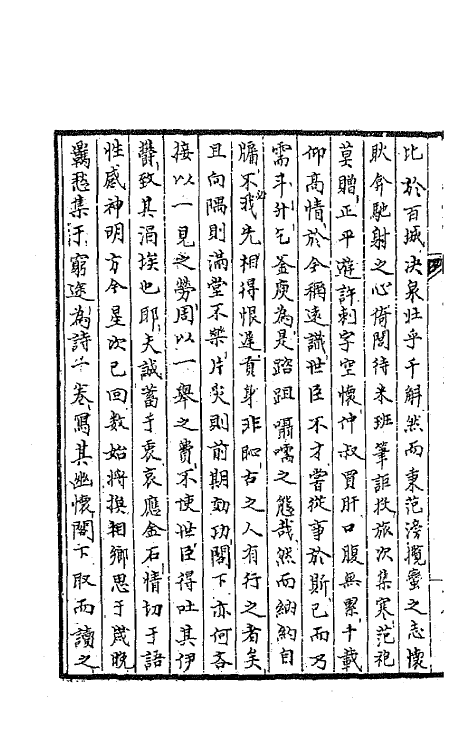 比於百城決泉壯乎千斛然而東范滂攬轡之志懷
耿弇馳射之心倚閭待米班筆詎投旅次集寒范袍
莫贈正平遊許刺字空懷仲叔買肝口腹無累千載
仰高情於今稱遠識世臣不才嘗從事於斯已而乃
需斗升乞釜庾為是踏跙囁嚅之態哉然而納約自
牖不必我先相得恨遲貢身非恥古之人有行之者矣
且向隅則滿堂不樂片災則前期勸功閣下亦何吝
接以一見之勞周以一舉之費不使世臣得吐其伊
鬱致其涓埃也耶夫誠蓄于衷哀應金石情切于語
性感神明方今星次已回數始將撰相鄉思于歲晚
羈愁集于窮途為詩一卷寫其幽懷閣下取而讀之